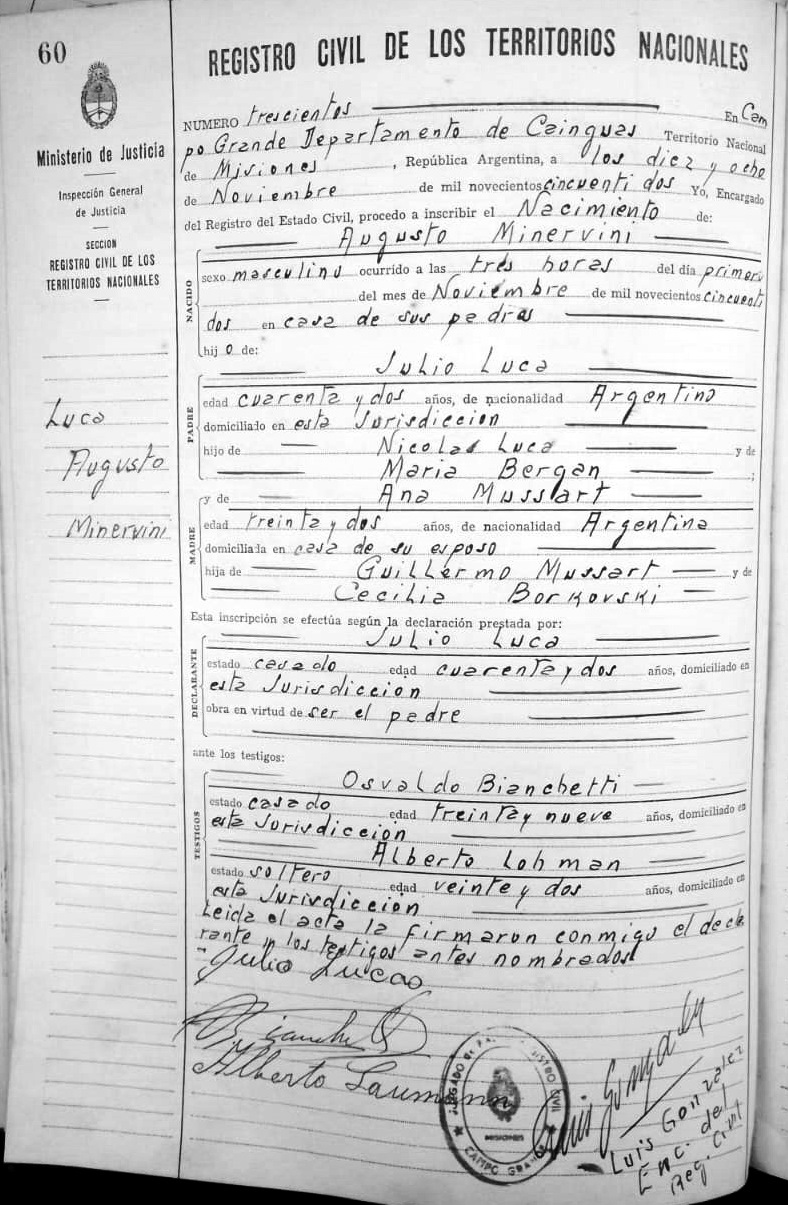 60
REGISTRO CIVIL DE LOS TERRITORIOS NACIONALES
Ministerio de Justicia
Inspección General
de Justicia
SECCION
REGISTRO CIVIL DE LOS
TERRITORIOS NACIONALES
Luca
Augusto
Minervini
NUMERO trescientos En Cam
po Grande Departamento de Cainguas Territorio Nacional
de Misiones, República Argentina, a los diez y ocho
de Noviembre de mil novecientos cincuenti dos Yo, Encargado
del Registro del Estado Civil, procedo a inscribir el Nacimiento de:
Augusto Minervini
NACIDO
sexo masculino ocurrido a las tres horas del día primero
del mes de Noviembre de mil novecientos cincuenti
dos en casa de sus padres
hijo de:
Julio Luca
PADRE
edad cuarenta y dos años, de nacionalidad Argentino
domiciliado en esta Jurisdiccion
hijo de Nicolas Luca y de
Maria Bergan ;
y de Ana Mussart
MADRE
edad treinta y dos años, de nacionalidad Argentina
domiciliada en casa de su esposo
hija de Guillermo Mussart y de
Cecilia Borkovski
Esta inscripción se efectúa según la declaración prestada por:
Julio Luca
DECLARANTE
estado casado edad cuarenta y dos años, domiciliado en
esta Jurisdiccion
obra en virtud de ser el padre
ante los testigos:
Osvaldo Bianchetti
TESTIGOS
estado casado edad treinta y nueve años, domiciliado en
esta Jurisdiccion
Alberto Lohman
estado soltero edad veinte y dos años, domiciliado en
esta Jurisdiccion
Leida el acta la firmaron conmigo el decla
rante y los testigos antes nombrados
Julio Lucas
Alberto Laumann
Luis Gonzalez
CAMPO GRANDE
MISIONES
Luis Gonzalez
Enc. del
Reg. Civil